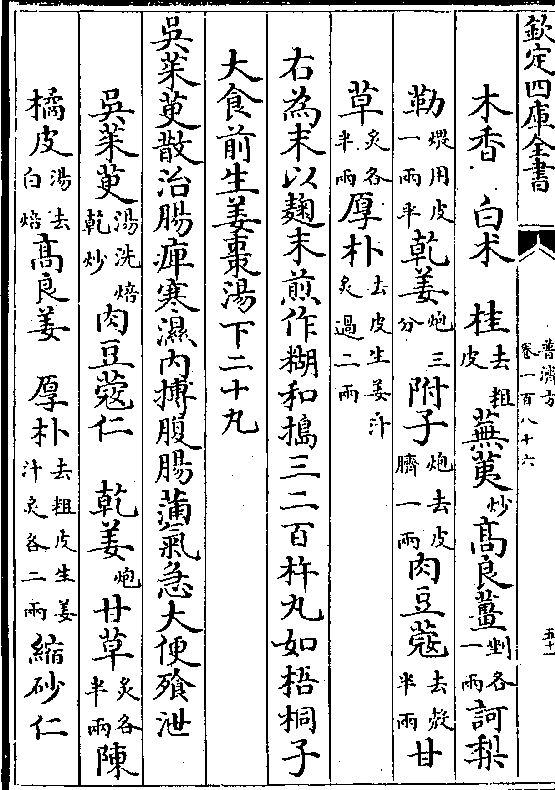 欽定四庫全書
普濟方
卷一百八十六
五十
木香 白术 桂去粗皮 蕪荑炒 高良薑剉各一兩 訶梨
勒煨用皮一兩半 乾姜炮三分 附子炮去皮臍一兩 肉豆蔻去殼半兩 甘
草炙各半兩 厚朴去皮生姜汁炙過二兩
右為末以麴末煎作糊和搗三二百杵丸如梧桐子
大食前生姜棗湯下二十丸
吳茱萸散治腸痺寒濕內搏腹腸滿氣急大便飱泄
吳茱萸湯洗焙乾炒 肉豆蔻仁 乾姜炮 甘草炙各半兩 陳
橘皮湯去白焙 高良姜 厚朴去粗皮生姜汁炙各二兩 縮砂仁